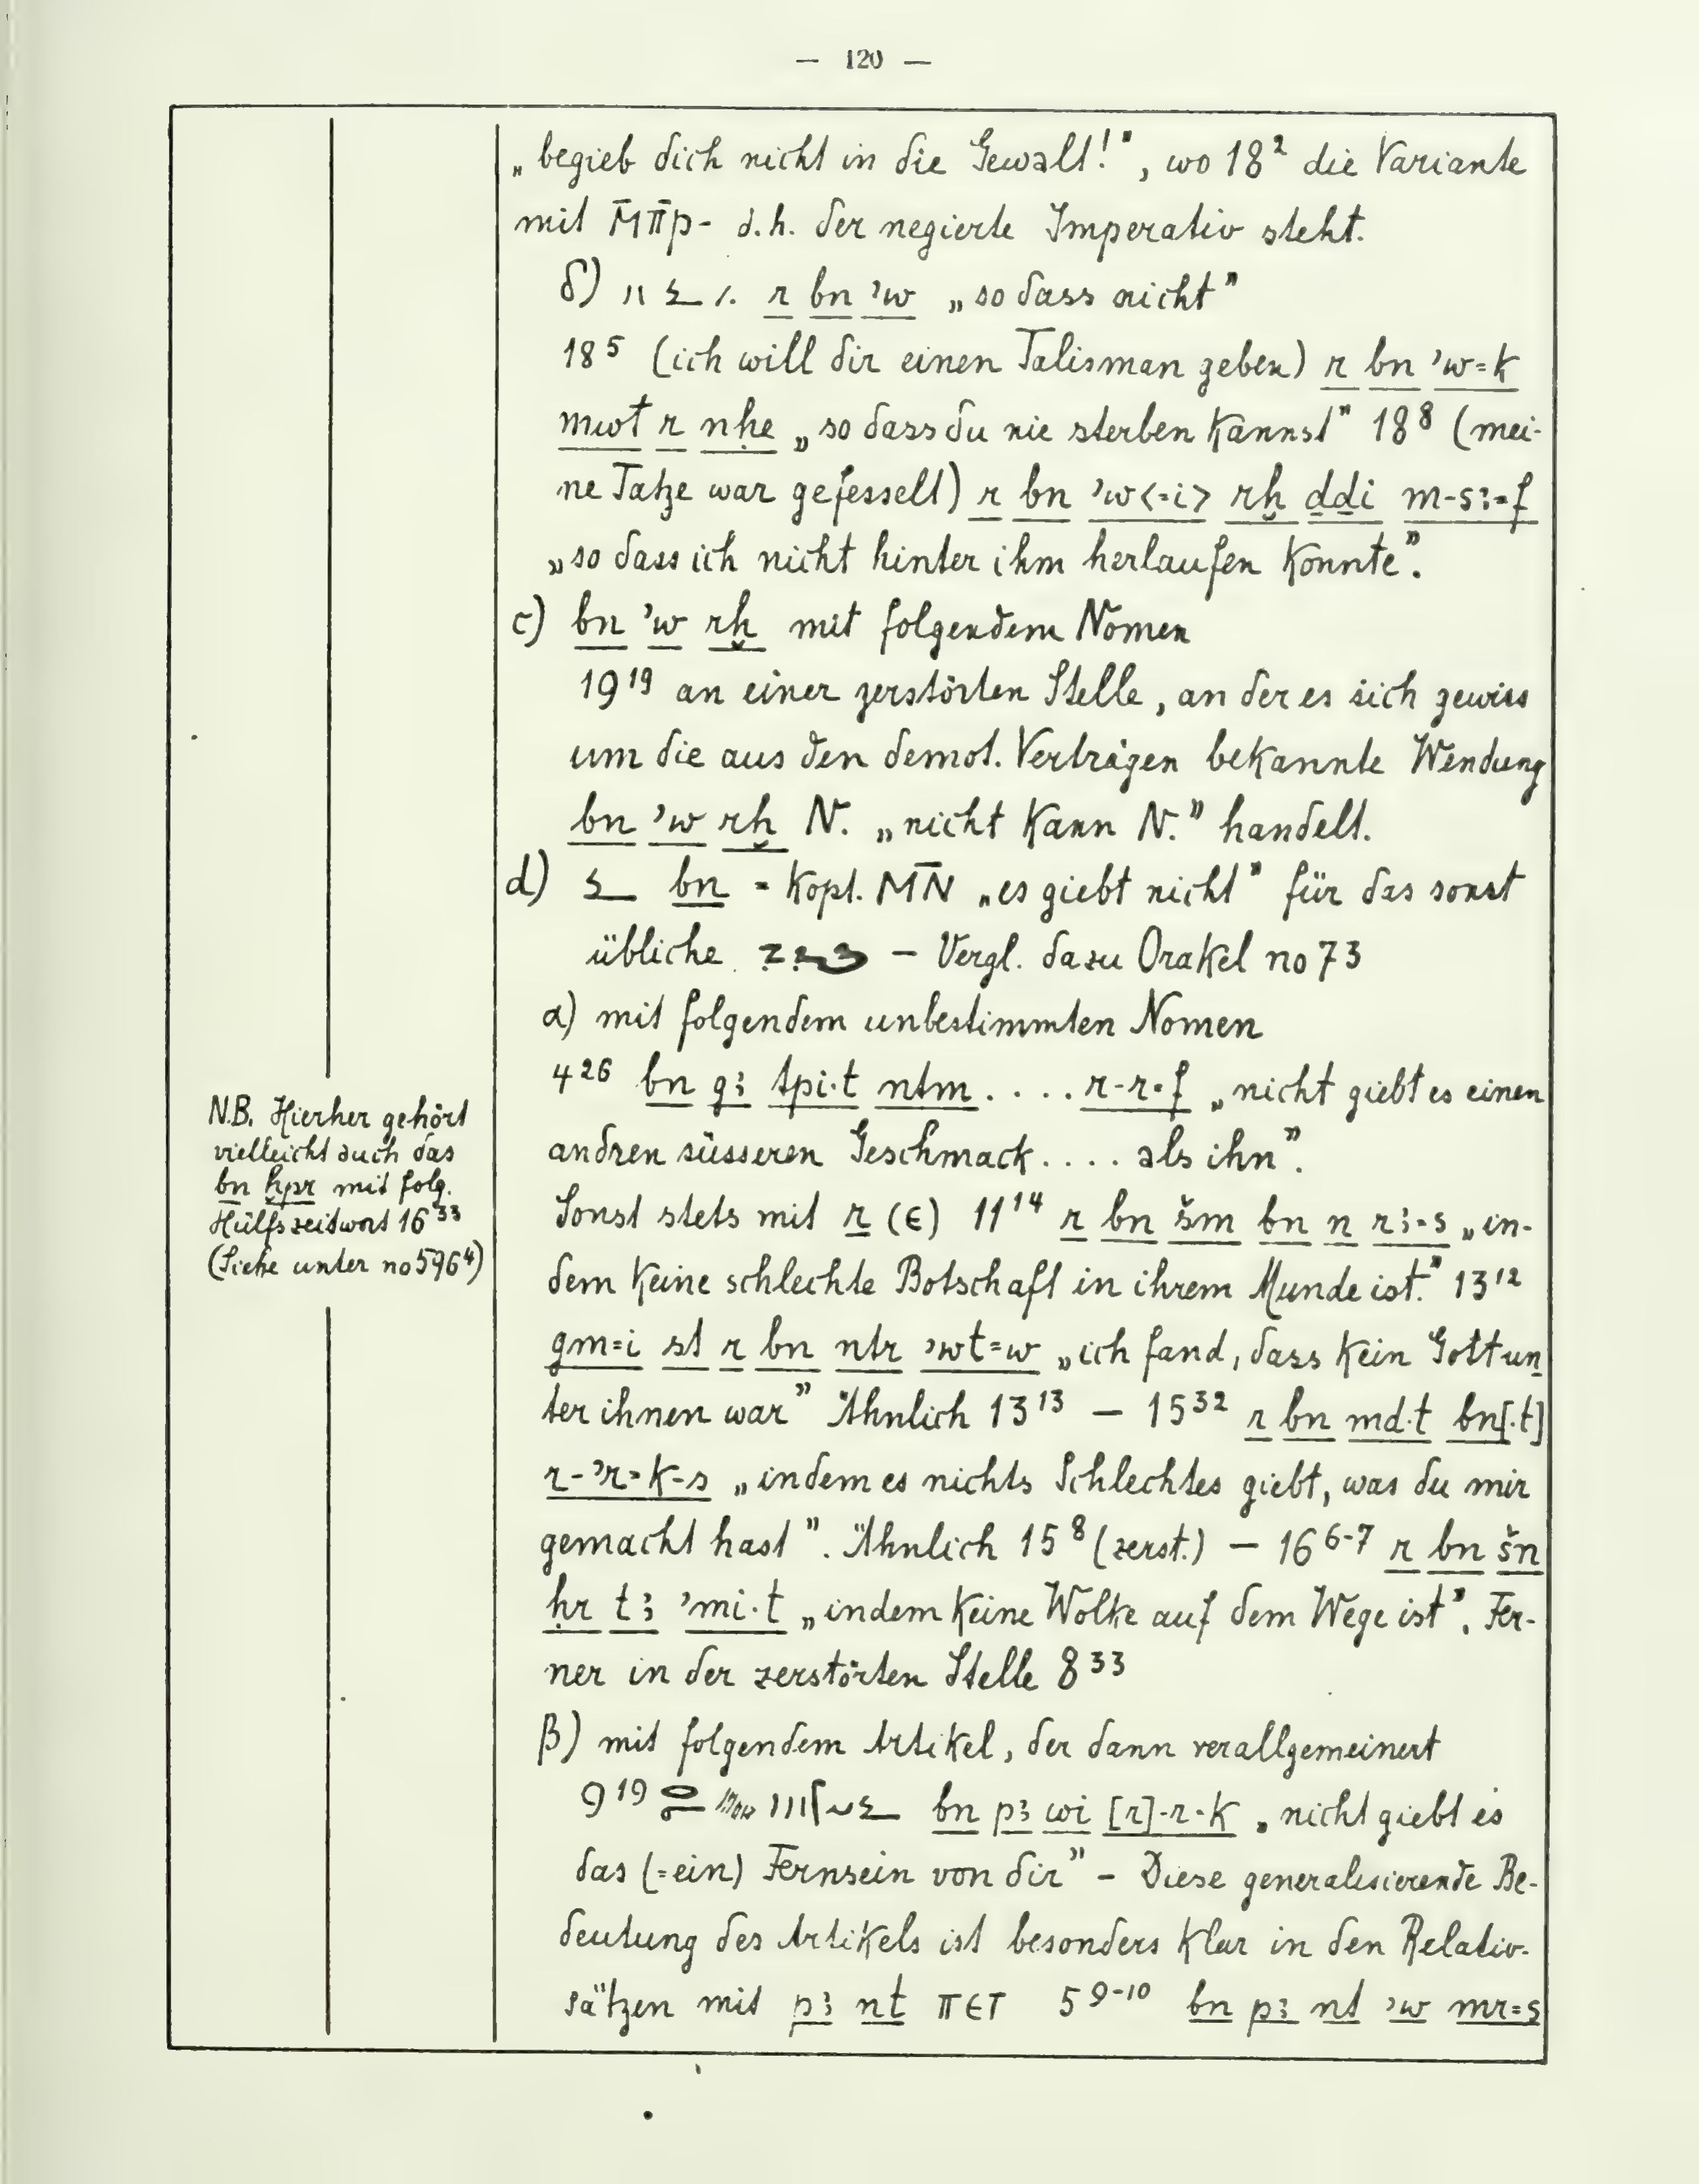 — 120 —
„begieb dich nicht in die Gewalt!”, wo 18² die Variante
mit M̄Π̄p- d.h. der negierte Imperativ steht.
δ) r bn ʾw „so dass nicht”
18⁵ (ich will dir einen Talisman geben) r bn ʾw=k
mwt r nḥe „so dass du nie sterben kannst” 18⁸ (mei-
ne Tatze war gefesselt) r bn ʾw<=i> rḫ ḏḏi m-sꜣ=f
„so dass ich nicht hinter ihm herlaufen konnte”.
c) bn ʾw rḫ mit folgendem Nomen
19¹⁹ an einer zerstörten Stelle, an der es sich gewiss
um die aus den demot. Verträgen bekannte Wendung
bn ʾw rḫ N. „nicht kann N.” handelt.
d) bn = kopt. M̄N̄ „es giebt nicht” für das sonst
übliche – Vergl. dazu Orakel no 73
α) mit folgendem unbestimmten Nomen
4²⁶ bn gꜣ tpi·t ntm . . . . r-r=f „nicht giebt es einen
andren süsseren Geschmack . . . . als ihn”.
Sonst stets mit r (ϵ) 11¹⁴ r bn šm bn n rꜣ=s „in-
dem keine schlechte Botschaft in ihrem Munde ist.” 13¹²
gm=i st r bn ntr ʾwt=w „ich fand, dass kein Gott un
ter ihnen war” Ähnlich 13¹³ – 15³² r bn md·t bn[·t]
r-ʾr=k-s „indem es nichts Schlechtes giebt, was du mir
gemacht hast”. Ähnlich 15⁸ (zerst.) – 16⁶⁻⁷ r bn šn
ḥr tꜣ ʾmi·t „indem keine Wolke auf dem Wege ist”. Fer-
ner in der zerstörten Stelle 8³³
β) mit folgendem Artikel, der dann verallgemeinert
9¹⁹ bn pꜣ wi [r]-r=k „nicht giebt es
das (=ein) Fernsein von dir” – Diese generalisierende Be-
deutung des Artikels ist besonders klar in den Relativ-
sätzen mit pꜣ nt ΠϵT 5⁹⁻¹⁰ bn pꜣ nt ʾw mr=s
N.B. Hierher gehört
vielleicht auch das
bn ḫpr mit folg.
Hülfszeitwort 16³³
(Siehe unter no 596⁴)